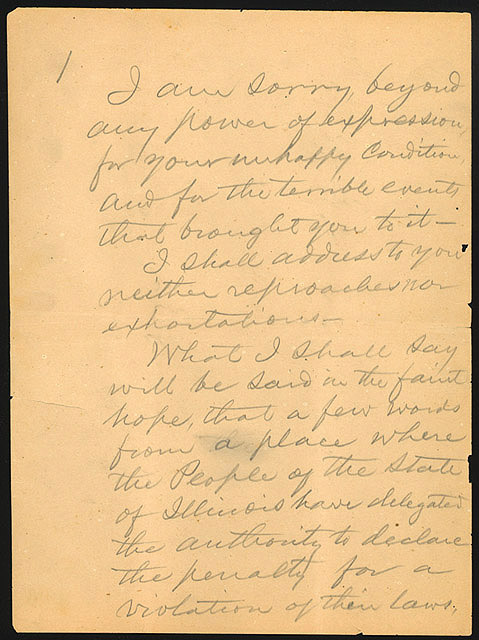 1
I am sorry, beyond
any power of expression,
for your unhappy Condition,
and for the terrible events
that brought you to it —
I shall address to you
neither reproaches nor
exhortations —
What I shall say
will be said in the faint
hope, that a few words
from a place where
the People of the State
of Illinois have delegated
the authority to declare
the penalty for a
violation of their laws,